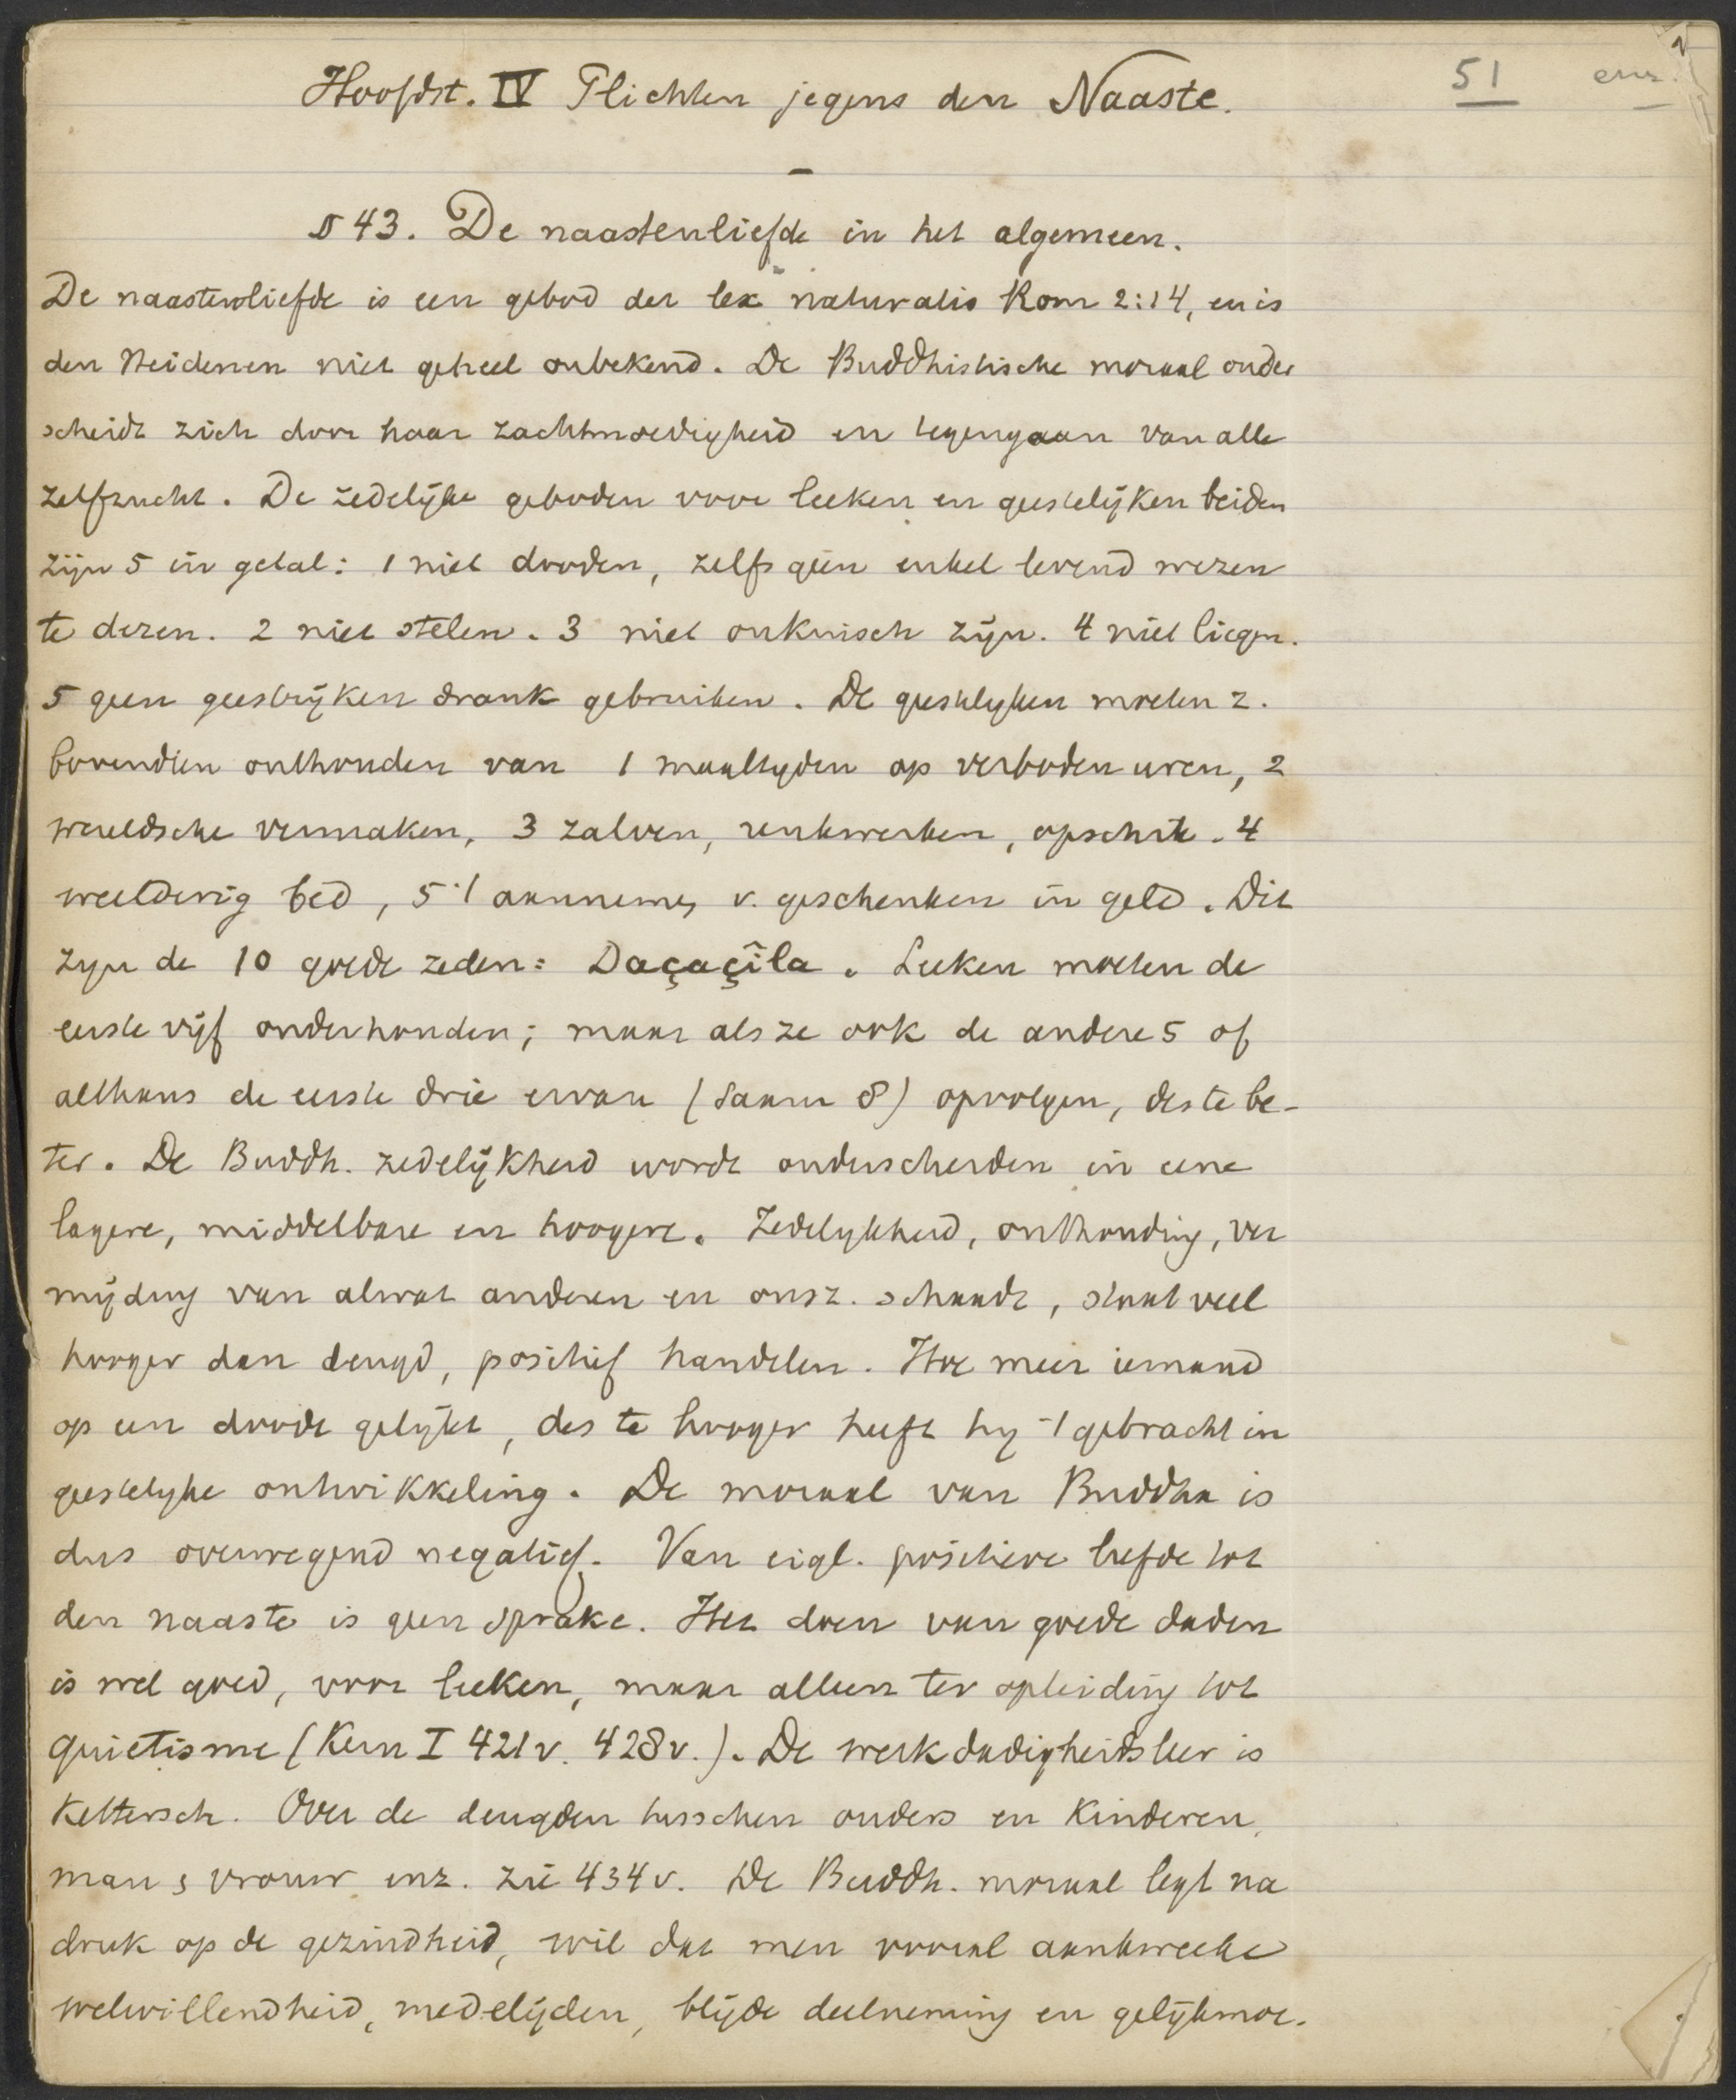 Hoofdst. IV Plichten jegens den Naaste.
51 enz.
§ 43. De naastenliefde in het algemeen.
De naastenliefde is een gebod der lex naturalis Rom 2:14, en is
den Heidenen niet geheel onbekend. De Buddhistische moraal onder
scheidt zich door haar zachtmoedigheid en tegengaan van alle
zelfzucht. De zedelijke geboden voor leeken en geestelijken beiden
zijn 5 in getal: 1 niet dooden, zelfs geen enkel levend wezen
te deren. 2 niet stelen. 3 niet onkuisch zijn. 4 niet liegen.
5 geen geestrijken drank gebruiken. De geestelyken moeten z.
bovendien onthouden van 1 maaltyden op verboden uren, 2
wereldsche vermaken, 3 zalven, reukwerken, opschik. 4
weelderig bed, 5 't aannemen v. geschenken in geld. Dit
zyn de 10 goede zeden: Daçaçîla. Leeken moeten de
eerste vijf onderhouden; maar als ze ook de andere 5 of
althans de eerste drie ervan (Saam 8) opvolgen, des te be-
ter. De Buddh. zedelijkheid wordt onderscheiden in eene
lagere, middelbare en hoogere. Zedelykheid, onthouding, ver
mijding van alwat anderen en onsz. schaadt, staat veel
hooger dan deugd, positief handelen. Hoe meer iemand
op een doode gelijkt, des te hooger heeft hy 't gebracht in
geestelyke ontwikkeling. De moraal van Buddha is
dus overwegend negatief. Van eigl. positieve liefde tot
den naaste is geen sprake. Het doen van goede daden
is wel goed, voor leeken, maar alleen ter opleiding tot
quietisme (Kern I 421v. 428v.). De werkdadigheidsleer is
Kettersch. Over de deugden tusschen ouders en Kinderen,
man & vrouw enz. zie 434v. De Buddh. moraal legt na
druk op de gezindheid, wil dat men vooral aankweeke
welwillendheid, medelijden, blijde deelneming en gelijkmoe-